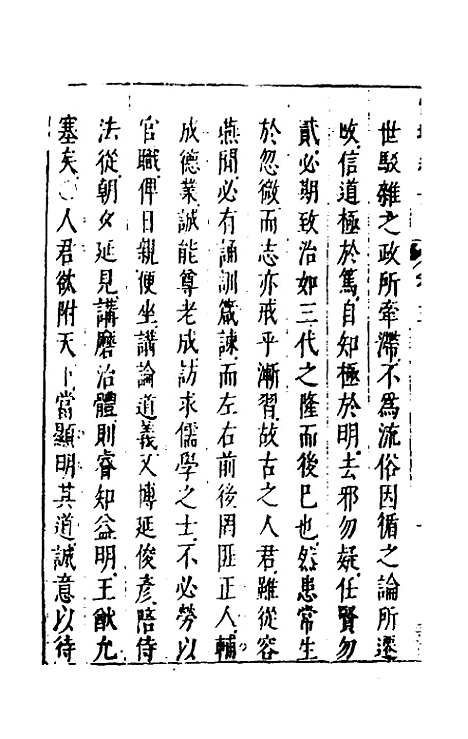 世駁雜之政所牽滯不爲流俗因循之論所遷
攺信道極於篤自知極於明去邪勿疑任賢勿
貳必期致治如三代之隆而後已也然患常生
於忽微而志亦戒乎漸習故古之人君雖從容
燕閒必有誦訓箴諫而左右前後罔匪正人輔
成德業誠能尊老成訪求儒學之士不必勞以
官職俾日親便坐講論道義又博延俊彥陪侍
法從朝夕延見講磨治體則睿知益明王猷允
塞矣〇人君欲附天下當顯明其道誠意以待